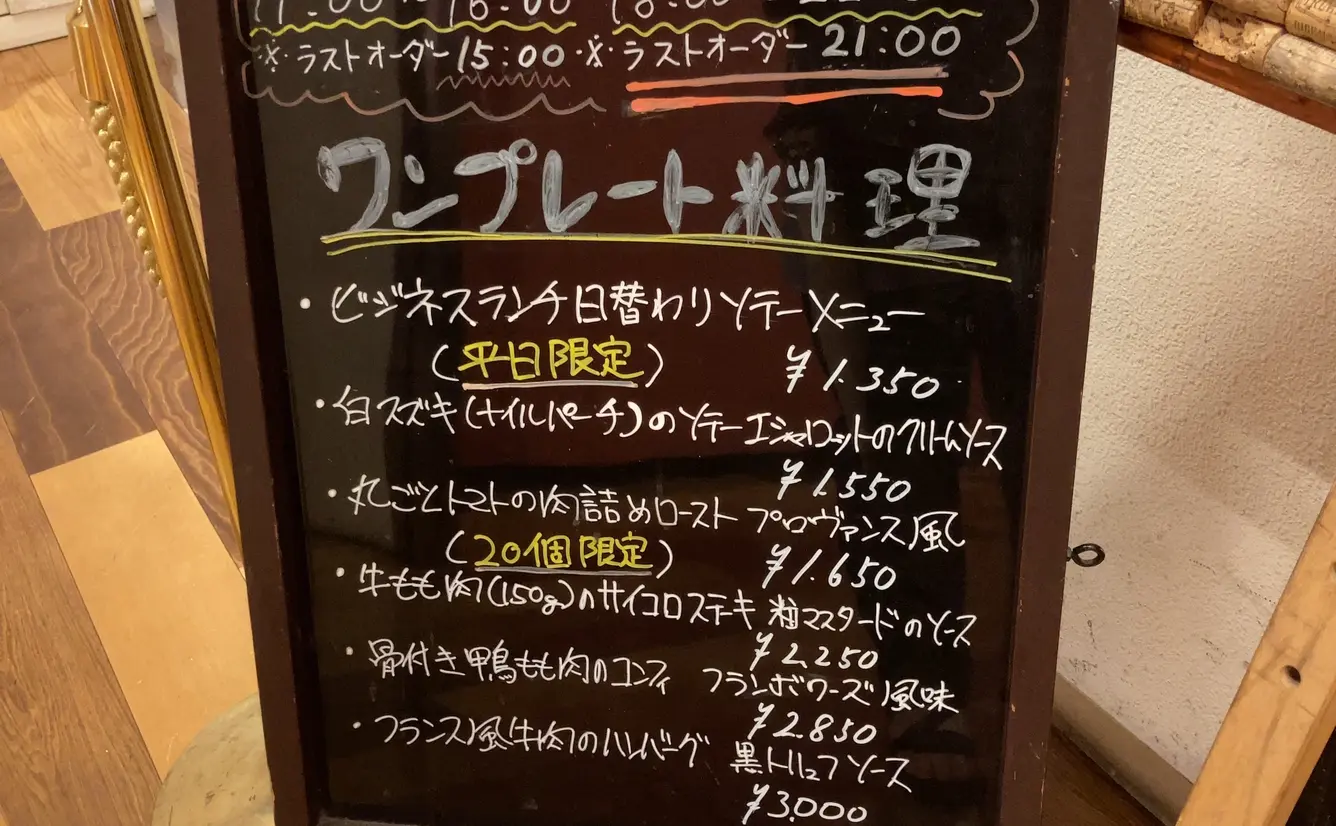 16:00
※ラストオーダー15:00 ※ラストオーダー21:00
ワンプレート料理
・ビジネスランチ日替わりソテーメニュー
(平日限定) ¥1.350
・白スズキ(ナイルパーチ)のソテーエシャロットのクリームソース
¥1.550
・丸ごとトマトの肉詰めロースト プロヴァンス風
(20個限定) ¥1.650
・牛もも肉(150g)のサイコロステーキ 粒マスタードのソース
¥2.250
・骨付き鴨もも肉のコンフィ フランボワーズ風味
¥2.850
・フランス風牛肉のハンバーグ 黒トリュフソース
¥3.000